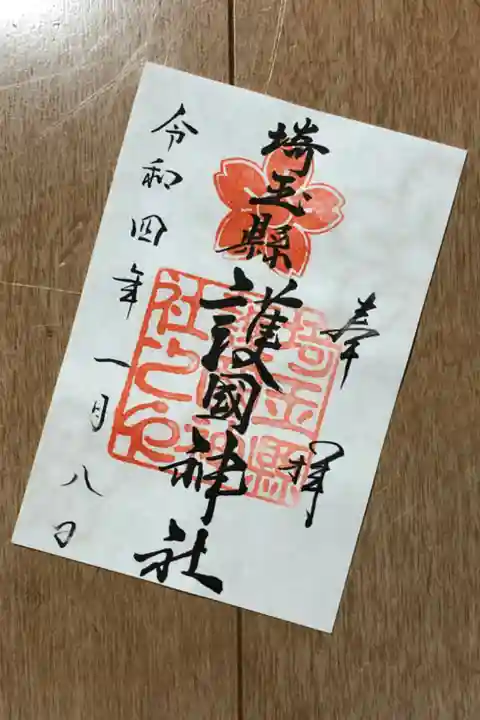 奉拝
埼玉縣護國神社
埼玉縣
護國神
社之印
令和四年一月八日